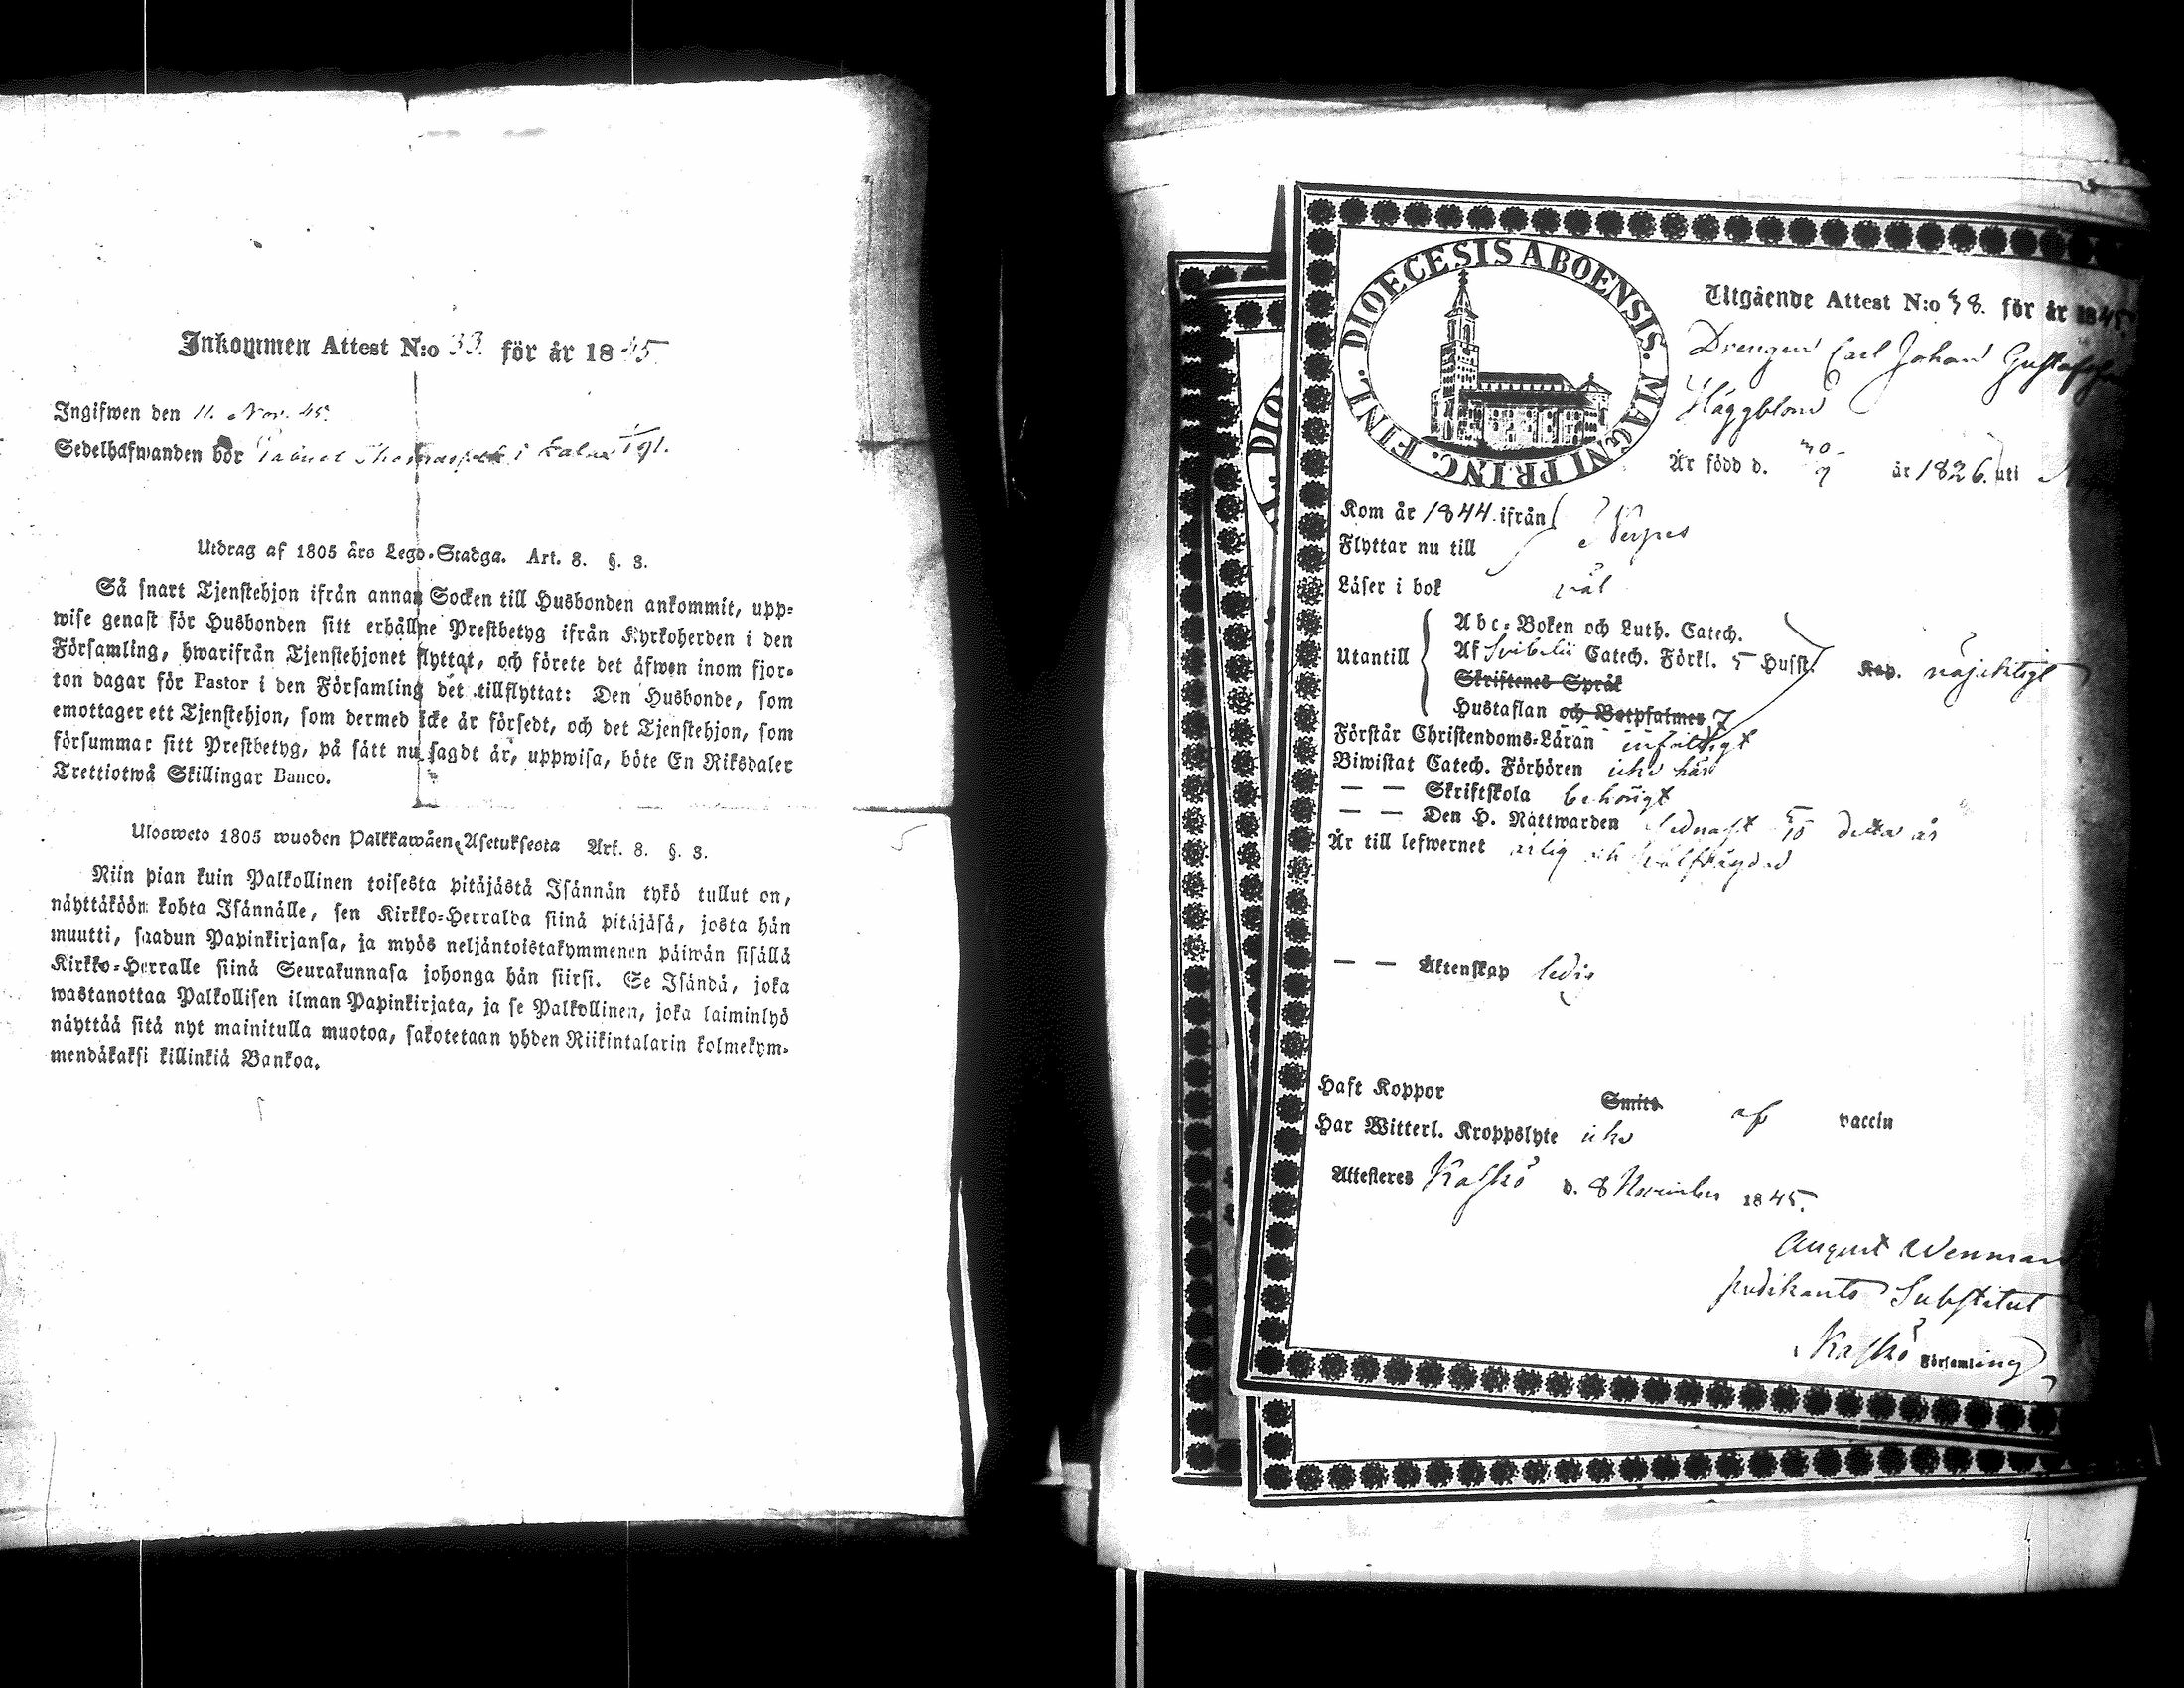 Inkommen Attest N:o 33. för år 1845.
Ingifwen den 11. Nov. 45.
Sedelhafwanden bör i
Utdrag af 1805 års Lego-Stadga. Art. 8. §. 3.
Så snart Tjenstehjon ifrån annan Socken till Husbonden ankommit, upp-
wise genast för Husbonden sitt erhållne Prestbetyg ifrån Kyrkoherden i den
Församling, hwarifrån Tjenstehjonet flyttat, och förete det äfwen inom fjor-
ton dagar för Pastor i den Församling det tillflyttat: Den Husbonde, som
emottager ett Tjenstehjon, som dermed icke är försedt, och det Tjenstehjon, som
försummar sitt Prestbetyg, på sätt nu sagdt är, uppwisa, böte En Riksdaler
Trettiotwå Skillingar Banco.
Ulosweto 1805 wuoden Palkkawäen Asetuksesta Art. 8. §. 3.
Niin pian kuin Palkollinen toisesta pitäjästä Isännän tykö tullut on,
näyttäköön kohta Isännälle, sen Kirkko-Herralda siinä pitäjäsä, josta hän
muutti, saadun Papinkirjansa, ja myös neljäntoistakymmenen päiwän sisällä
Kirkko-Herralle siinä Seurakunnasa johonga hän siirsi. Se Isändä, joka
wastanottaa Palkollisen ilman Papinkirjata, ja se Palkollinen, joka laiminlyö
näyttää sitä nyt mainitulla muotoa, sakotetaan yhden Riikintalarin kolmekym-
mendäkaksi killinkiä Bankoa.
DIOECESIS ABOENSIS. MAGNI PRINC. FINL.
DIO
Utgående Attest N:o 38. för år 1845
Drengen Carl Johan Gustafsson
Häggblond
Är född d. år 1826. uti
Kom år 1844. ifrån
Flyttar nu till Nerpes
Läser i bok väl
Utantill
Abc-Boken och Luth. Catech.
Af Svibelii Catech. Förkl. 5 Hufst. Kap. nöjaktigt
Skriftenes Språk
Hustaflan och Botpsalmer 7
Förstår Christendoms-Läran enfaldigt
Biwistat Catech. Förhören icke här
— — Skriftskola behörigt
— — Den H. Nattwarden sednast 5/10 detta år
Är till lefwernet ärlig och wälfrägdad
— — Äktenskap ledig
Haft Koppor Smitt af vaccin
Har Witterl. Kroppslyte icke
Attesteres Kaskö d. 8 November 1845.
August Wenman
predikants Substitut
Kaskö Församling